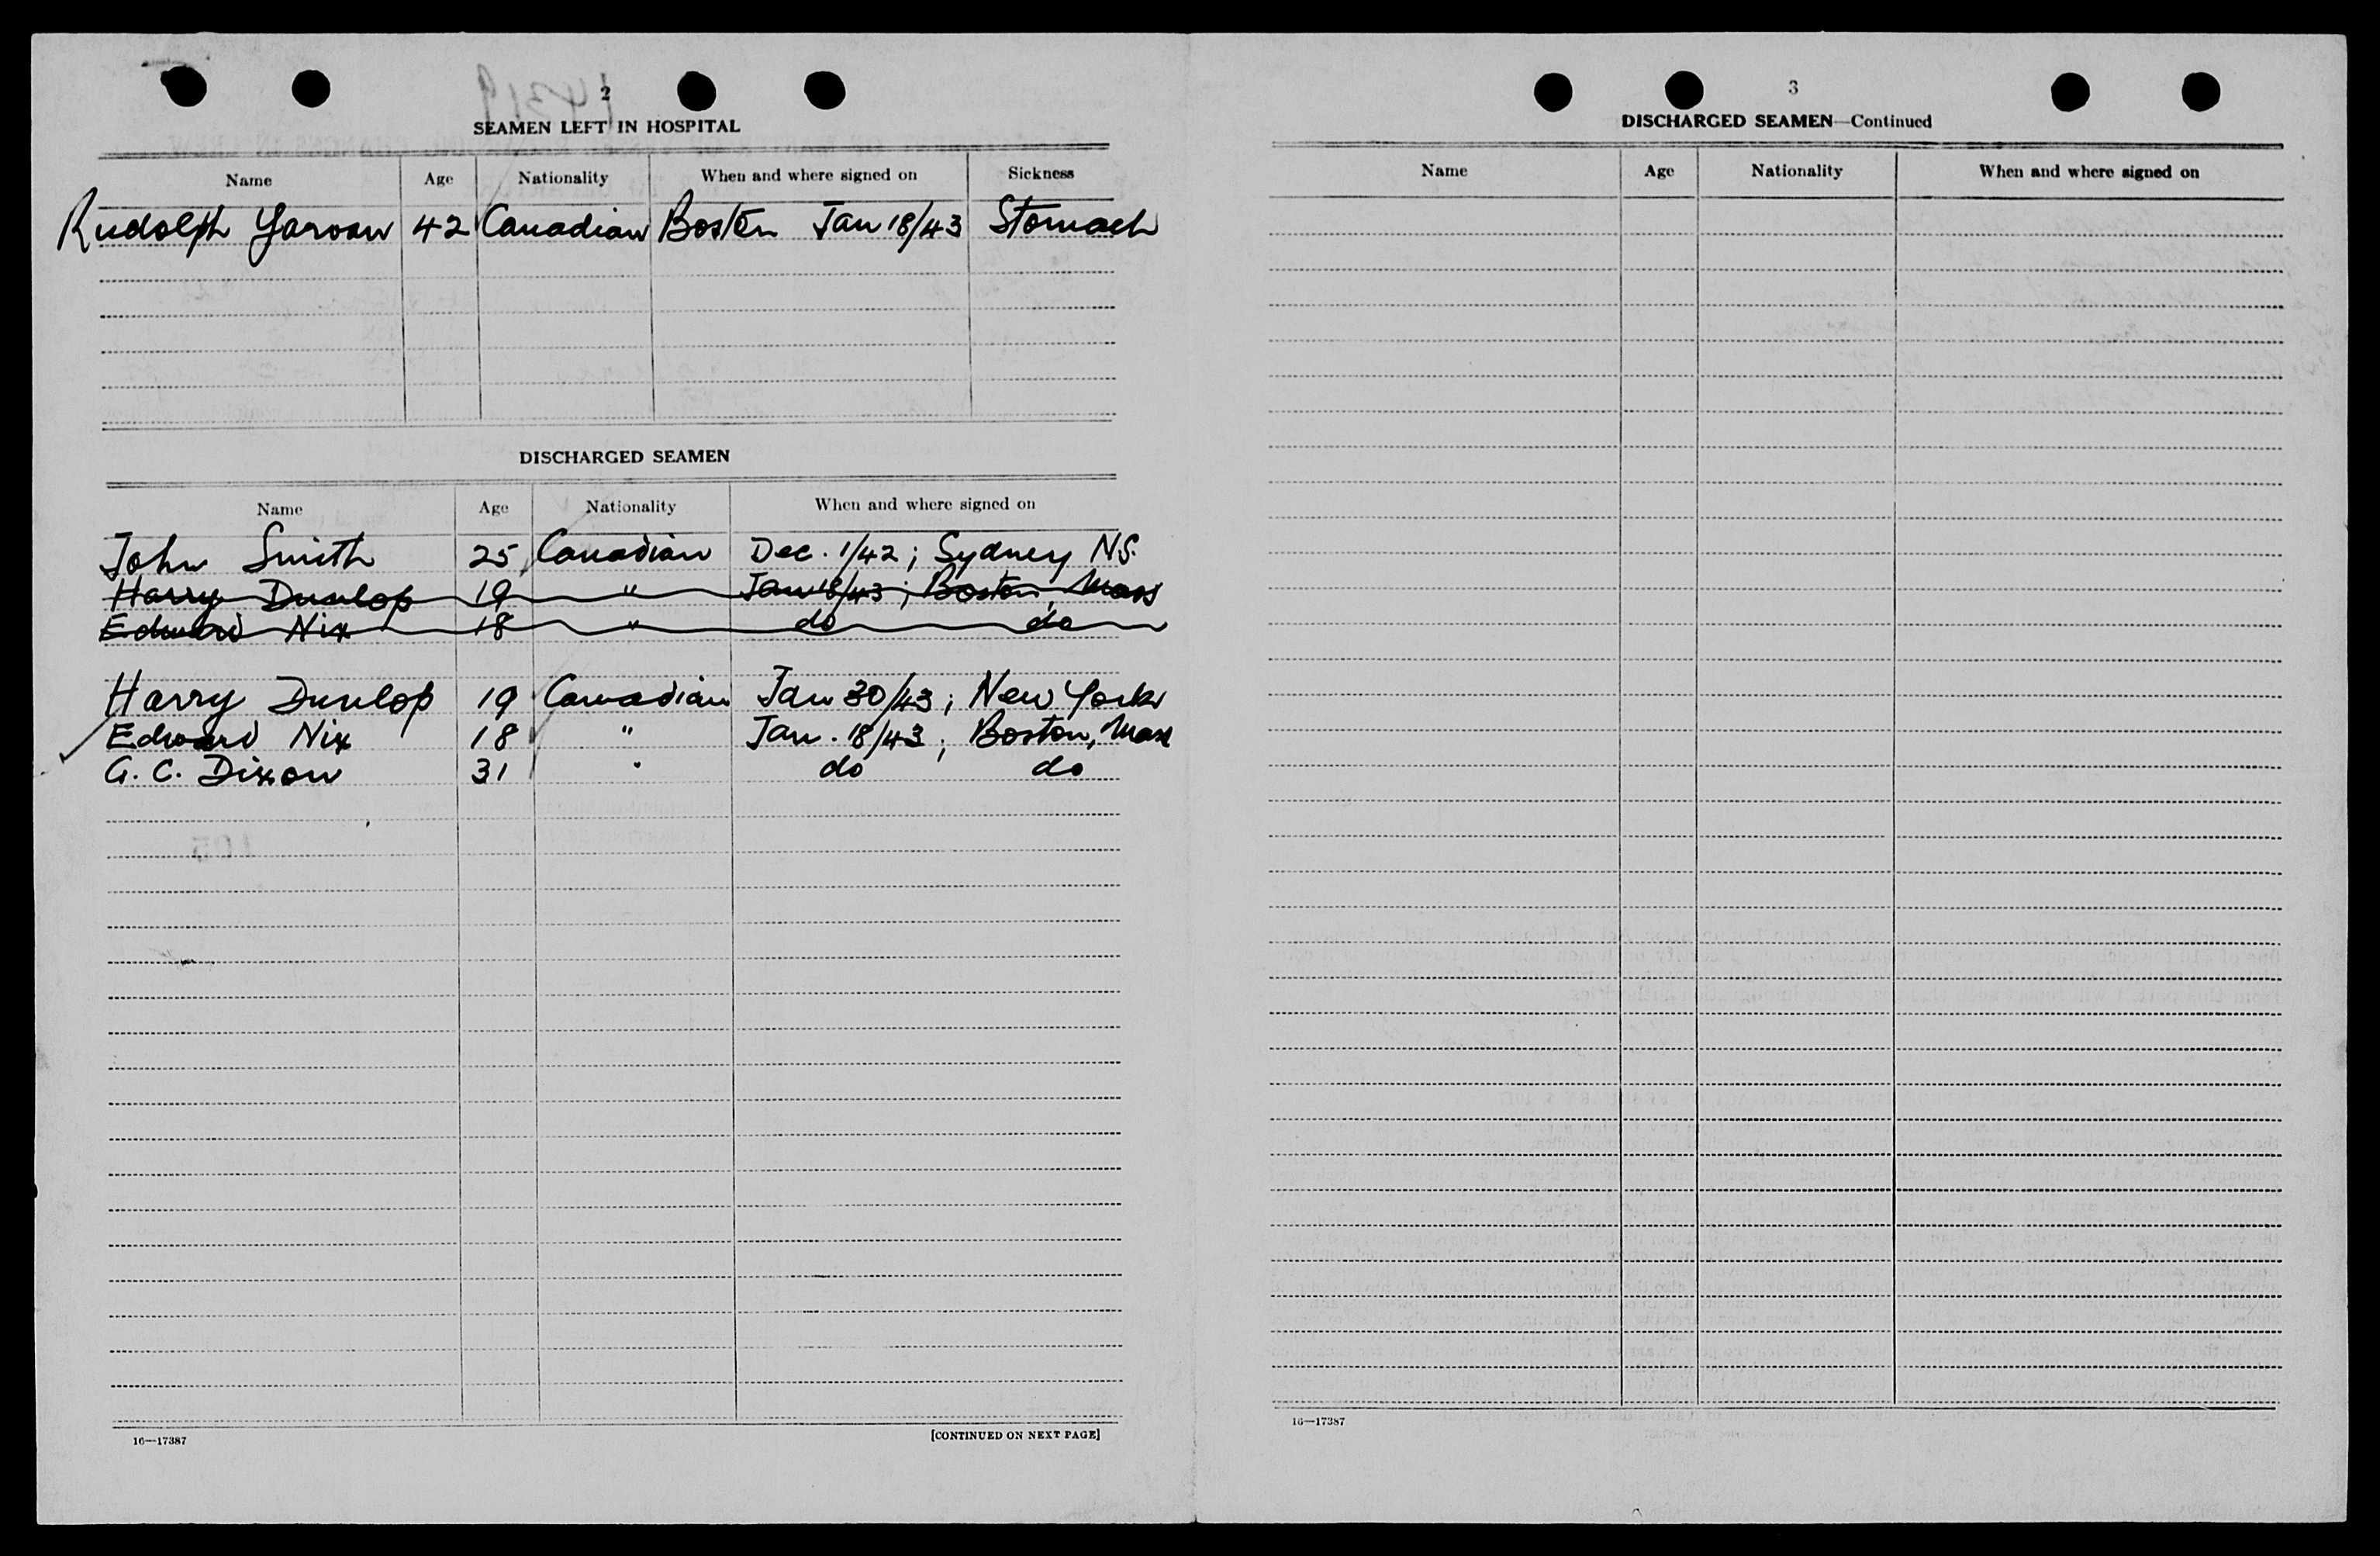 2
SEAMEN LEFT IN HOSPITAL
Name Age Nationality When and where signed on Sickness
Rudolph 42 Canadian Boston Jan 18/43 Stomach
DISCHARGED SEAMEN
Name Age Nationality When and where signed on
John Smith 25 Canadian Dec. 1/42; Sydney N.S.
Harry Dunlop 19 " Jan 18/43; Boston, Mass
Edward Nix 18 " do do
Harry Dunlop 19 Canadian Jan 30/43; New York
Edward Nix 18 " Jan. 18/43; Boston, Mass
G. C. Dixon 31 " do do
16—17387 [CONTINUED ON NEXT PAGE]
3
DISCHARGED SEAMEN—Continued
Name Age Nationality When and where signed on
16—17387